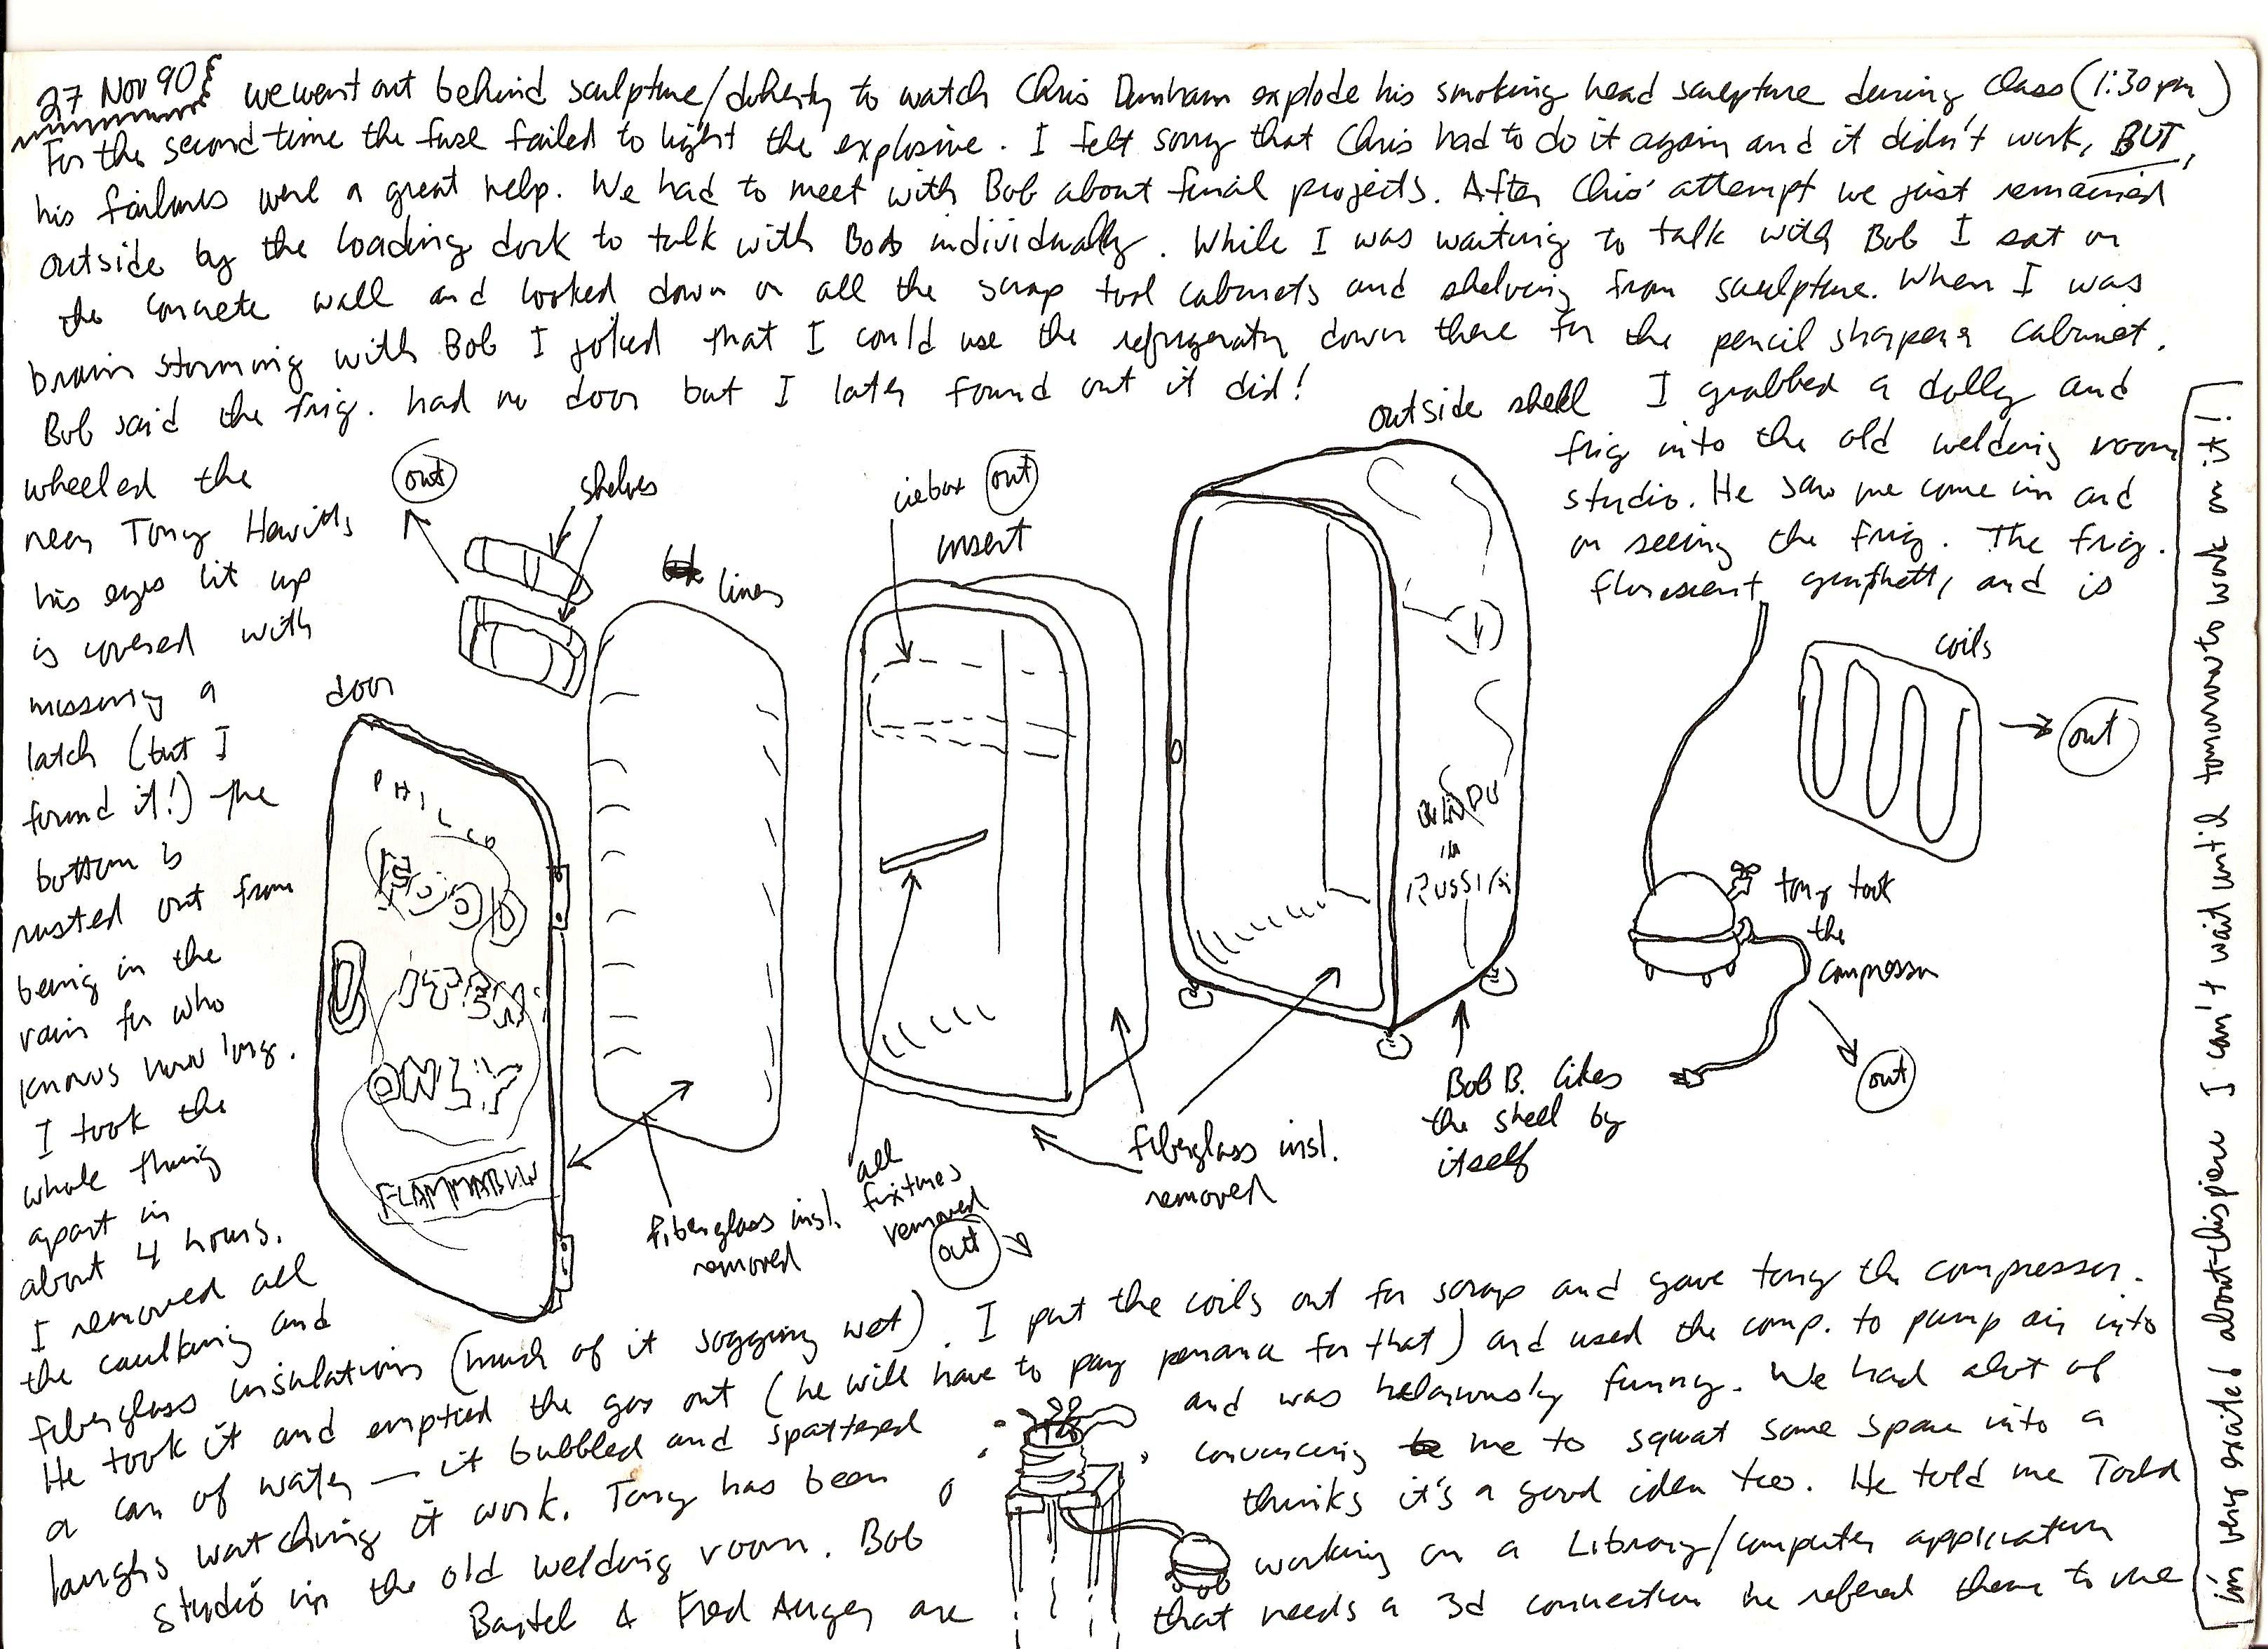 27 Nov 90 we went out behind sculpture/doherty to watch Chris Dunham explode his smoking head sculpture during class (1:30 pm)
For the second time the fuse failed to light the explosive. I felt sorry that Chris had to do it again and it didn't work, BUT,
his failures were a great help. We had to meet with Bob about final projects. After Chris' attempt we just remained
outside by the loading dock to talk with Bob individually. While I was waiting to talk with Bob I sat on
the concrete wall and looked down on all the scrap tool cabinets and shelving from sculpture. When I was
brain storming with Bob I joked that I could use the refrigerator down there for the pencil sharpener cabinet.
Bob said the frig. had no door but I later found out it did!
I grabbed a dolly and
wheeled the
frig into the old welding room
near Tony Hewitts
studio. He saw me come in and
his eyes lit up
on seeing the frig. The frig.
is covered with
florescent graffetti, and is
missing a
latch (but I
found it!) The
bottom is
rusted out from
being in the
rain for who
knows how long.
I took the
whole thing
apart in
about 4 hours.
I removed all
the caulking and
fiberglass insulation (much of it sogging wet). I put the coils out for scrap and gave tony the compressor.
He took it and emptied the gas out (he will have to pay penance for that) and used the comp. to pump air into
a can of water — it bubbled and spattered and was helariously funny. We had alot of
laughs watching it work. Tony has been convincing me to squat some space into a
studio in the old welding room. Bob thinks it's a good idea too. He told me Todd
Bastel & Fred Auger are working on a Library/computer application
that needs a 3d connection he refered them to me
out
shelves
liner
icebox out
insert
outside shell
door
PHILCO
FOOD
ITEMS
ONLY
FLAMMABLE
fiberglass insl.
removed
all
fixtures
removed
out
fiberglass insl.
removed
in
RUSSIA
Bob B. likes
the shell by
itself
coils
out
tony took
the
compressor
out
i'm very excited about this piece I can't wait until tomorrow to work on it!